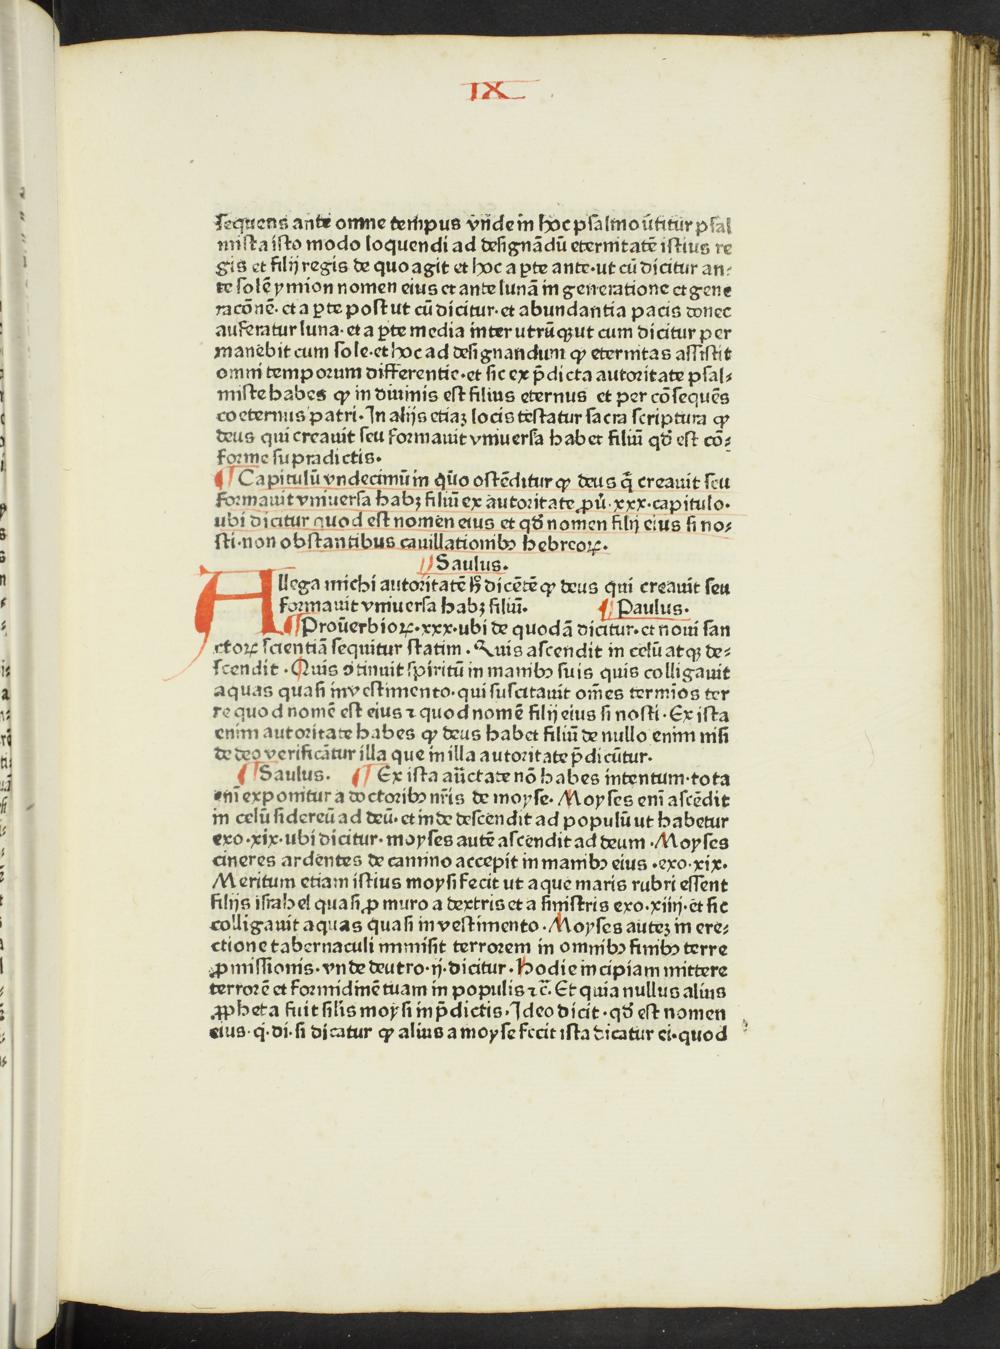 IX
sequens ante omne tempus vnde in hoc psalmo utitur psal
mista isto modo loquendi ad designãdũ eternitatẽ istius re
gis et filij regis de quo agit et hoc a ꝑte ante·ut cũ dicitur an⸗
te solẽ ymion nomen eius et ante lunã in generatione et gene
racõnẽ· et a ꝑte post ut cũ dicitur· et abundantia pacis donec
auferatur luna· et a ꝑte media inter utrũqꝫ ut cum dicitur per
manebit cum sole·et hoc ad designandum ꝙ eternitas assistit
omni temporum differentie·et sic ex p̃dicta autoritate psal⸗
miste habes ꝙ in diuinis est filius eternus et per cõsequẽs
coeternus patri· In alijs etiaꝫ locis testatur sacra scriptura ꝙ
deus qui creauit seu formauit vniuersa habet filiũ qđ est cõ⸗
forme supradictis·
¶ Capitulũ vndecimũ in quo ostẽditur ꝙ deus q̃ creauit seu
formauit vniuersa habꝫ filiũ ex autoritate ꝓũ·xxx·capitulo·
ubi dicitur quod est nomen eius et qđ nomen filij eius si no⸗
sti·non obstantibus cauillationibꝰ hebreoꝝ·
¶ Saulus·
Allega michi autoritatẽ h̃ dicẽtẽ ꝙ deus qui creauit seu
formauit vniuersa habꝫ filiũ· ¶ Paulus·
¶ Prouerbioꝝ·xxx·ubi de quodã dicitur·et noui san
ctoꝝ scientiã sequitur statim · Quis ascendit in celũ atqꝫ de⸗
scendit · Quis ꝯtinuit spiritũ in manibꝰ suis quis colligauit
aquas quasi in vestimento·qui suscitauit om̃es termios ter
re quod nomẽ est eius ⁊ quod nomẽ filij eius si nosti · Ex ista
enim autoritate habes ꝙ deus habet filiũ de nullo enim nisi
de deo verificãtur illa que in illa autoritate p̃dicũtur·
¶ Saulus· ¶ Ex ista aũctate nõ habes intentum·tota
enĩ exponitur a doctoribꝰ nr̃is de moyse· Moyses enĩ ascẽdit
in celũ sidereũ ad deũ·et inde descendit ad populũ ut habetur
exo·xix·ubi dicitur·moyses autẽ ascendit ad deum · Moyses
cineres ardentes de camino accepit in manibꝰ eius ·exo·xix·
Meritum etiam istius moysi fecit ut aque maris rubri essent
filijs israhel quasi ꝓ muro a dextris et a sinistris exo·xiiij·et sic
colligauit aquas quasi in vestimento · Moyses auteꝫ in ere⸗
ctione tabernaculi immisit terrorem in omnibꝰ finibꝰ terre
ꝓmissionis·vnde deutro·ij·dicitur · hodie incipiam mittere
terrorẽ et formidinẽ tuam in populis ⁊ c̃· Et quia nullus alius
ꝓpheta fuit sil̃is moysi in p̃dictis·Ideo dicit·qđ est nomen
eius·q·di·si dicatur ꝙ alius a moyse fecit ista dicatur ei·quod